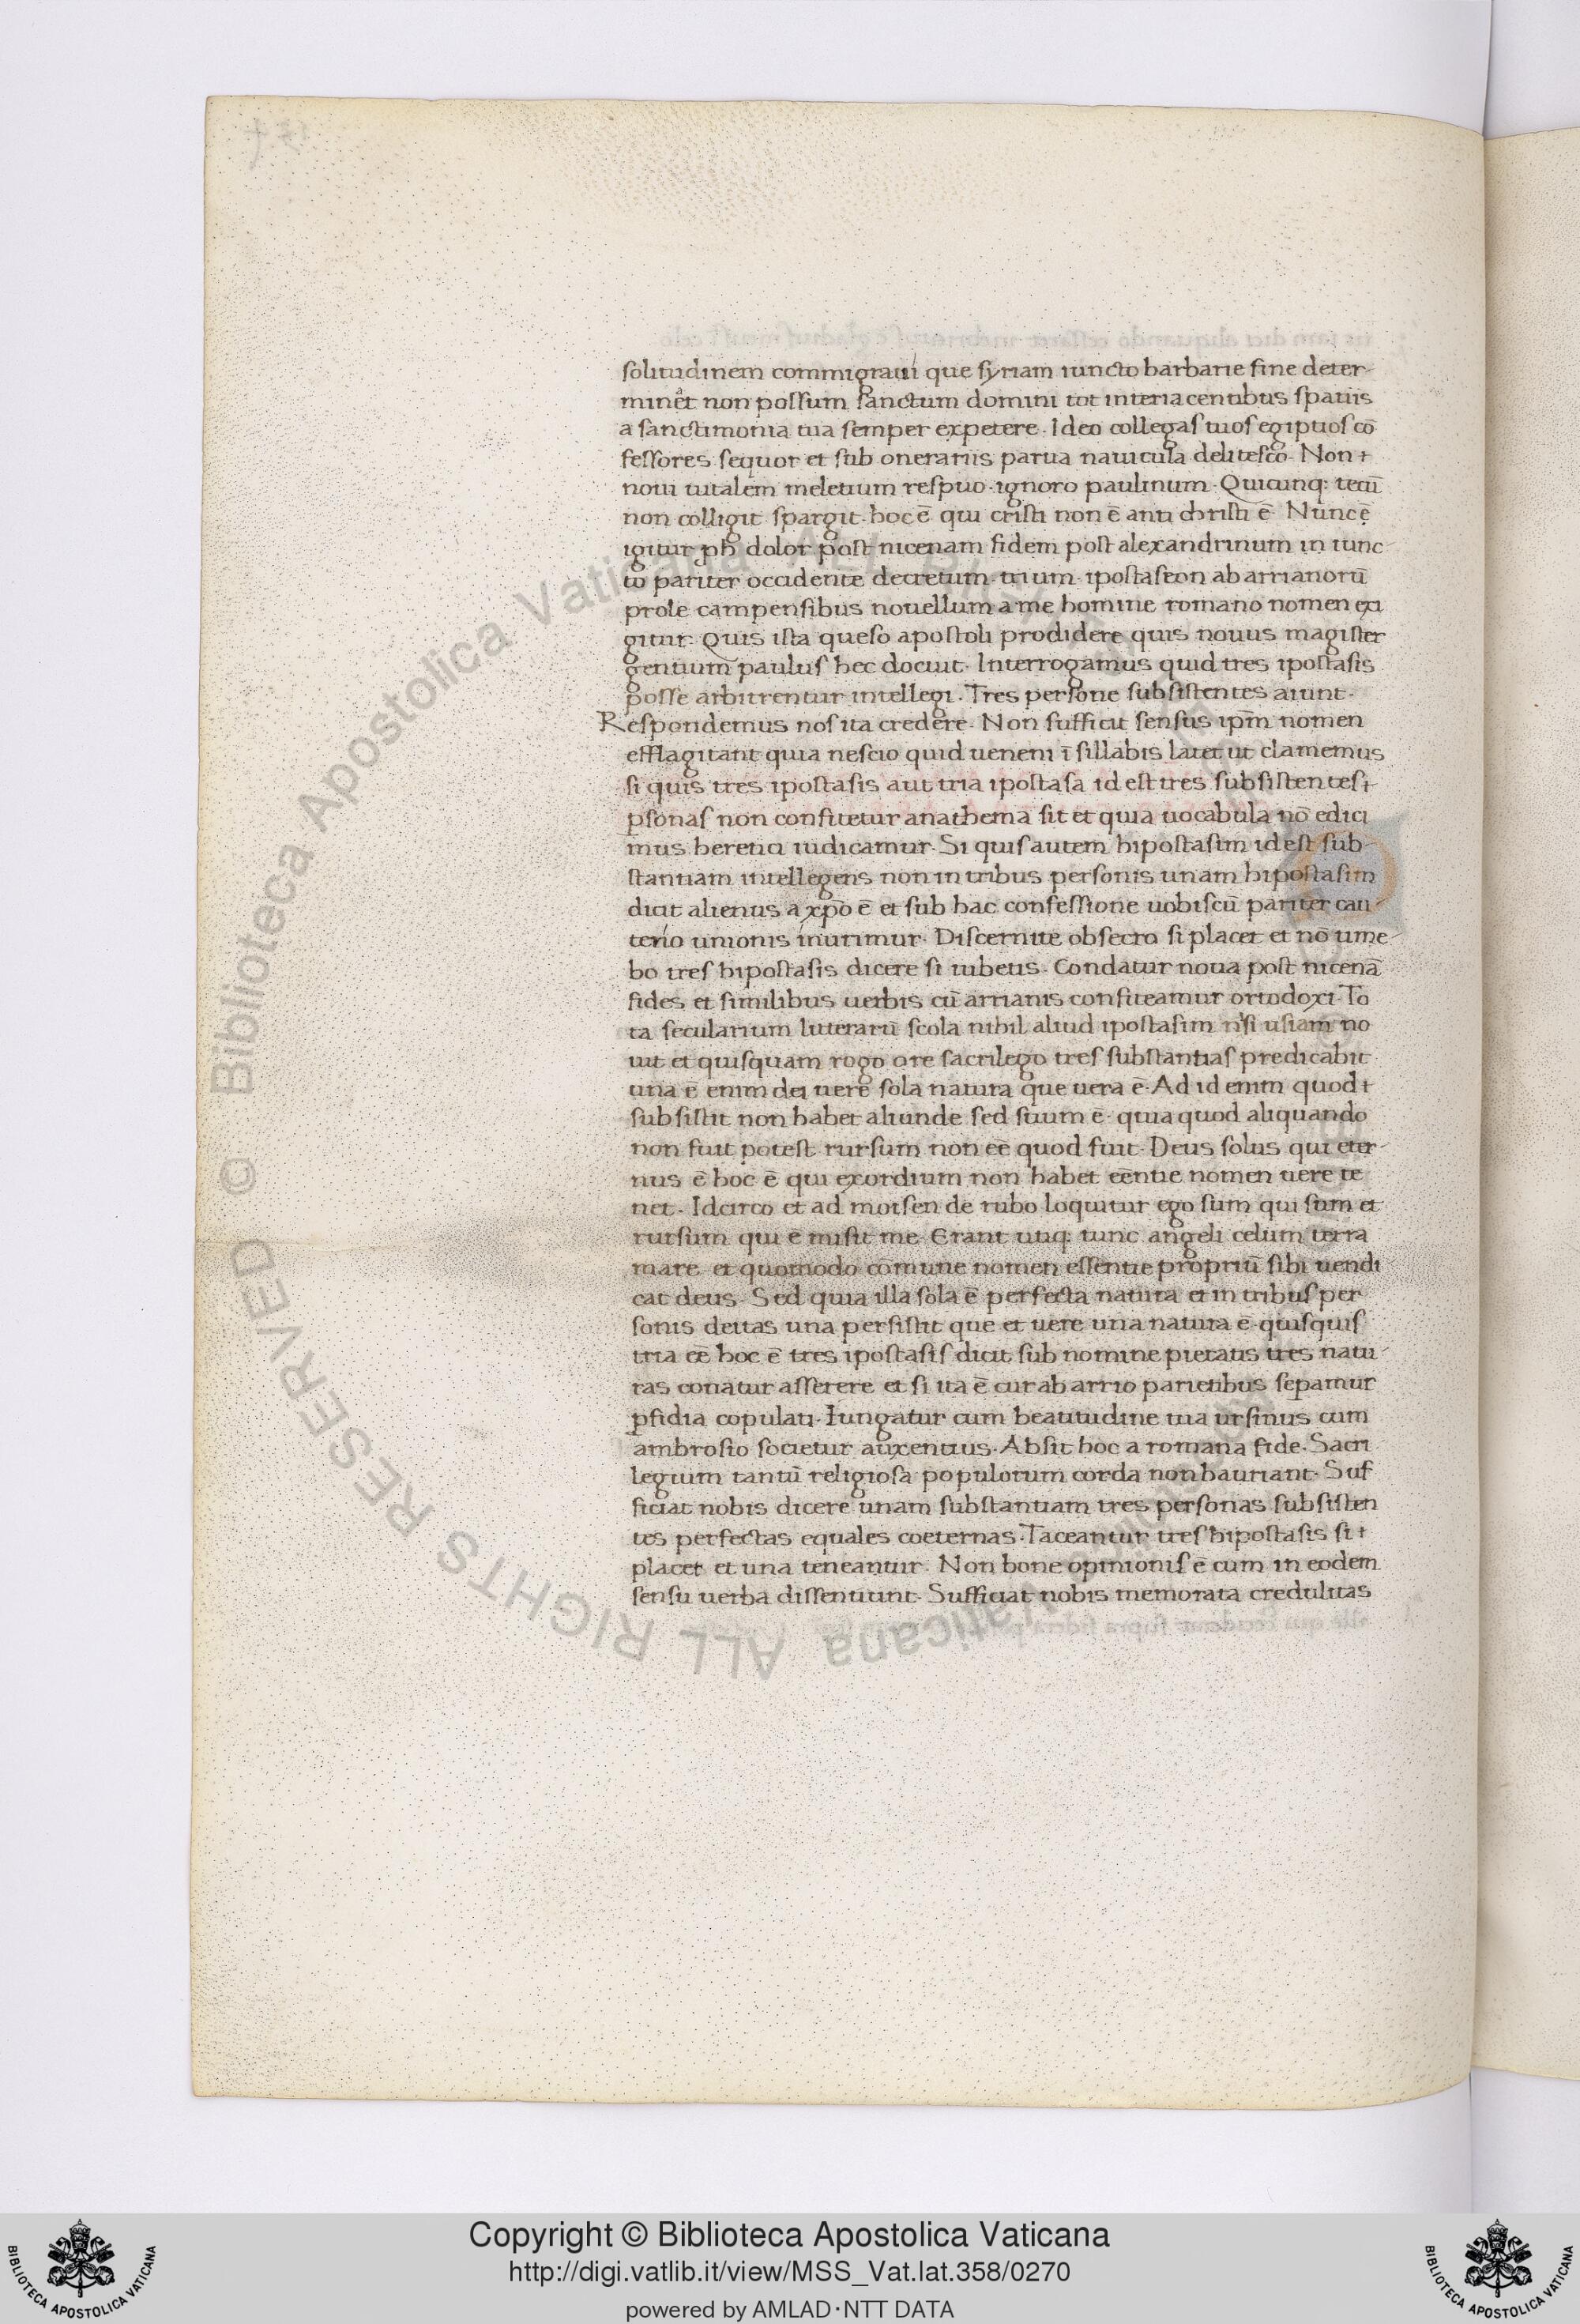 solitudinem commigraui que syriam iuncto barbarie fine deter-
minet non possum sanctum domini tot interiacentibus spatiis
a sanctimonia tua semper expetere. Ideo collegas tuos egiptios cō
fessores sequor et sub onerariis parua nauicula delitesco. Non
noui uitalem meletium respuo. ignoro paulinum. Quicunq: tecū
non colligit spargit. hoc ē qui cristi non ē anti christi ē Nunc ę
igitur ph dolor post nicenam fidem post alexandrinum in iunc
to pariter occidente decretum. trium. ipostaseon ab arrianorū
prole campensibus nouellum a me homine romano nomen exi
gitur. Quis ista queso apostoli prodidere quis nouus magister
gentium paulus hec docuit. Interrogamus quid tres ipostasis
posse arbitrentur intellegi. Tres persone subsistentes aiunt.
Respondemus nos ita credere. Non sufficit sensus ipm̄ nomen
efflagitant quia nescio quid ueneni ī sillabis latet ut clamemus
si quis tres ipostasis aut tria ipostasa id est tres subsistentes
psonas non confitetur anathema sit et quia uocabula nō edici
mus. heretici iudicamur. Si quis autem hipostasim id est sub-
stantiam intellegens non in tribus personis unam hipostasim
dicit alienus a xp̄o ē et sub hac confessione uobiscū pariter cau-
terio unionis inurimur. Discernite obsecro si placet et nō time-
bo tres hipostasis dicere si iubetis. Condatur noua post nicenā
fides et similibus uerbis cū arrianis confiteamur ortodoxi. To
ta secularium litterarū scola nihil aliud ipostasim nisi usiam no
uit et quisquam rogo ore sacrilego tres substantias predicabit
una ē enim dei uere sola natura que uera ē. Ad id enim quod
subsistit non habet aliunde sed suum ē. quia quod aliquando
non fuit potest rursum non eē quod fuit. Deus solus qui eter-
nus ē hoc ē qui exordium non habet eēntie nomen uere te
net. Idcirco et ad moisen de rubo loquitur ego sum qui sum et
rursum qui ē misit me. Erant utiq: tunc angeli celum terra
mare et quomodo cōmune nomen essentie propriū sibi uendi
cat deus. Sed quia illa sola ē perfecta natura et in tribus per
sonis deitas una persistit que et uere una natura ē. quisquis
tria eē hoc ē tres ipostasis dicit sub nomine pietatis tres natu-
ras conatur asserere et si ita ē cur ab arrio parietibus sepamur
pfidia copulati. Iungatur cum beatitudine tua ursinus cum
ambrosio societur auxentius. Absit hoc a romana fide. Sacri
legium tantū religiosa populorum corda non hauriant. Suf
ficiat nobis dicere unam substantiam tres personas subsisten
tes perfectas equales coeternas. Taceantur tres hipostasis si
placet et una teneantur. Non bone opinionis ē cum in eodem
sensu uerba dissentiunt. Sufficiat nobis memorata credulitas
© Biblioteca Apostolica Vaticana ALL RIGHTS RESERVED
Copyright © Biblioteca Apostolica Vaticana
http://digi.vatlib.it/view/MSS_Vat.lat.358/0270
powered by AMLAD·NTT DATA
BIBLIOTECA APOSTOLICA VATICANA
BIBLIOTECA APOSTOLICA VATICANA